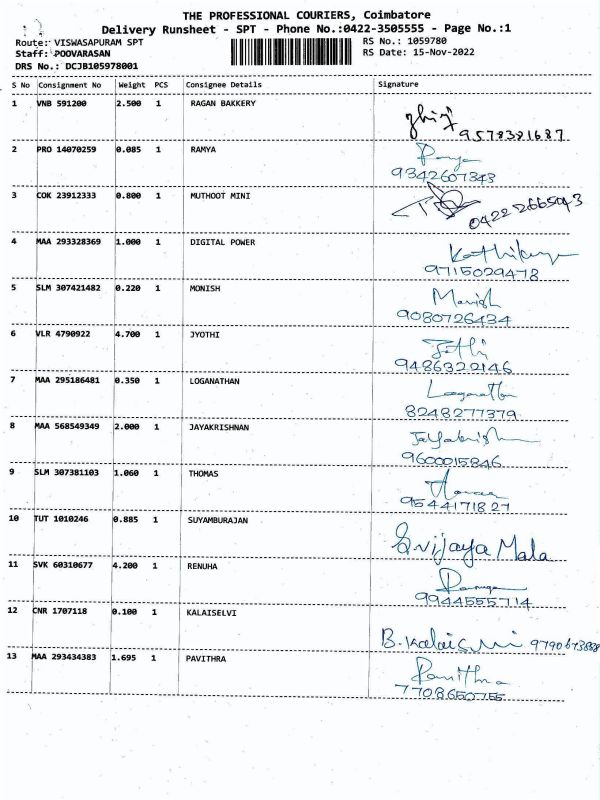 THE PROFESSIONAL COURIERS, Coimbatore
Delivery Runsheet - SPT - Phone No.:0422-3505555 - Page No.:1
Route: VISWASAPURAM SPT RS No.: 1059780
Staff: POOVARASAN RS Date: 15-Nov-2022
DRS No.: DCJB105978001
S No Consignment No Weight PCS Consignee Details Signature
1 VNB 591200 2.500 1 RAGAN BAKKERY
9578381687
2 PRO 14070259 0.085 1 RAMYA Ramya
9342607343
3 COK 23912333 0.800 1 MUTHOOT MINI
0422 2665943
4 MAA 293328369 1.000 1 DIGITAL POWER
9715029478
5 SLM 307421482 0.220 1 MONISH Monish
9080726434
6 VLR 4790922 4.700 1 JYOTHI Jothi
9486322146
7 MAA 295186481 0.350 1 LOGANATHAN
8248277379
8 MAA 568549349 2.000 1 JAYAKRISHNAN
9600015846
9 SLM 307381103 1.060 1 THOMAS
9544171827
10 TUT 1010246 0.885 1 SUYAMBURAJAN
S.vijaya Mala
11 SVK 60310677 4.200 1 RENUHA
9944555714
12 CNR 1707118 0.100 1 KALAISELVI
B.Kalaiselvi
13 MAA 293434383 1.695 1 PAVITHRA Pavithra
7708650755